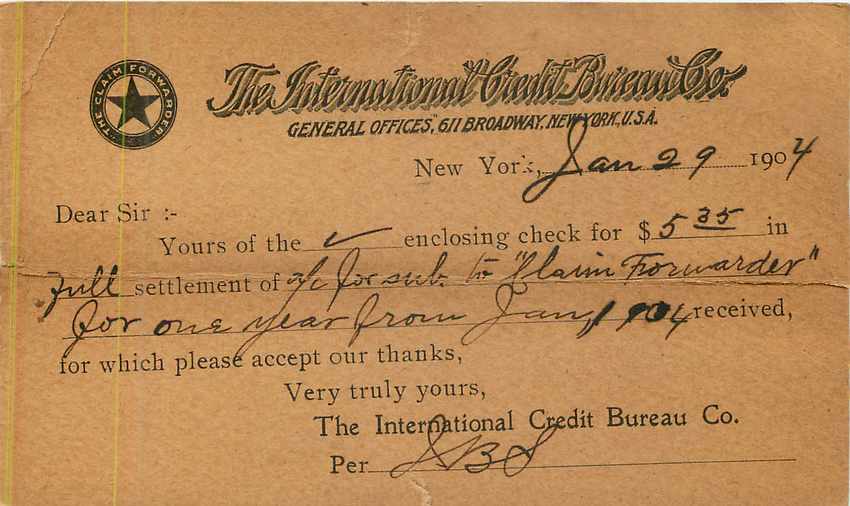 THE CLAIM FORWARDER
The International Credit Bureau Co.
GENERAL OFFICES, 611 BROADWAY, NEW YORK, U.S.A.
New York, Jan 29 1904
Dear Sir :-
Yours of the ✓ enclosing check for $ 5 35 in
full settlement of a/c for sub. to "Claim Forwarder"
for one year from Jan, 1904 received,
for which please accept our thanks,
Very truly yours,
The International Credit Bureau Co.
Per JBS